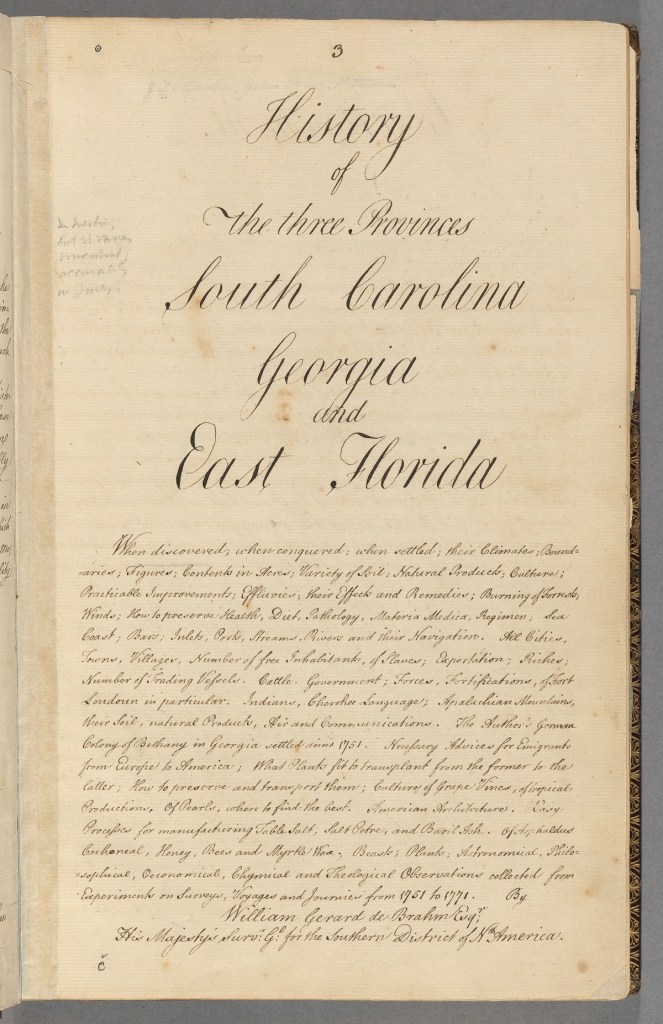 3
History
of
the three Provinces
South Carolina
Georgia
and
East Florida
When discovered; when conquered; when settled; their Climates; Bound-
raries; Figures; Contents in Acres; Variety of Soil; Natural Products; Culture;
Practicable Improvements; Effluvies, their Effects and Remedies; Burning of Forrests;
Winds; How to preserve Health, Diet, Pathology, Materia Medica, Regimen; Sea
Coast; Bars; Inlets, Ports, Streams, Rivers and their Navigation. All Cities,
Towns, Villages, Number of free Inhabitants, of Slaves; Exportation; Riches;
Number of Trading Vessels. Cattle. Government; Forces, Fortifications, of Fort
Loudoun in particular. Indians, Cherokee Language; Apalachian Mountains,
their Soil, natural Products, Air and Communications. The Author's German
Colony of Bethany in Georgia settled anno 1751. Necessary Advices for Emigrants
from Europe to America; What Plants fit to transplant from the former to the
latter; How to preserve and transport them; Culture of Grape Vines, of tropical
Productions, Of Pearls, where to find the best. American Architecture. Easy
Processes for manufacturing Table Salt, Salt Petre, and Baril Ash. Of
Cochoneal, Honey, Bees and Myrtle Wax. Beasts; Plants; Astronomical, Philo-
sophical, Oeconomical, Chymical and Theological Observations collected from
Experiments on Surveys, Voyages and Journies from 1751 to 1771. By
William Gerard de Brahm Esqr.
His Majesty's Survr. Gl. for the Southern District of Nth. America.